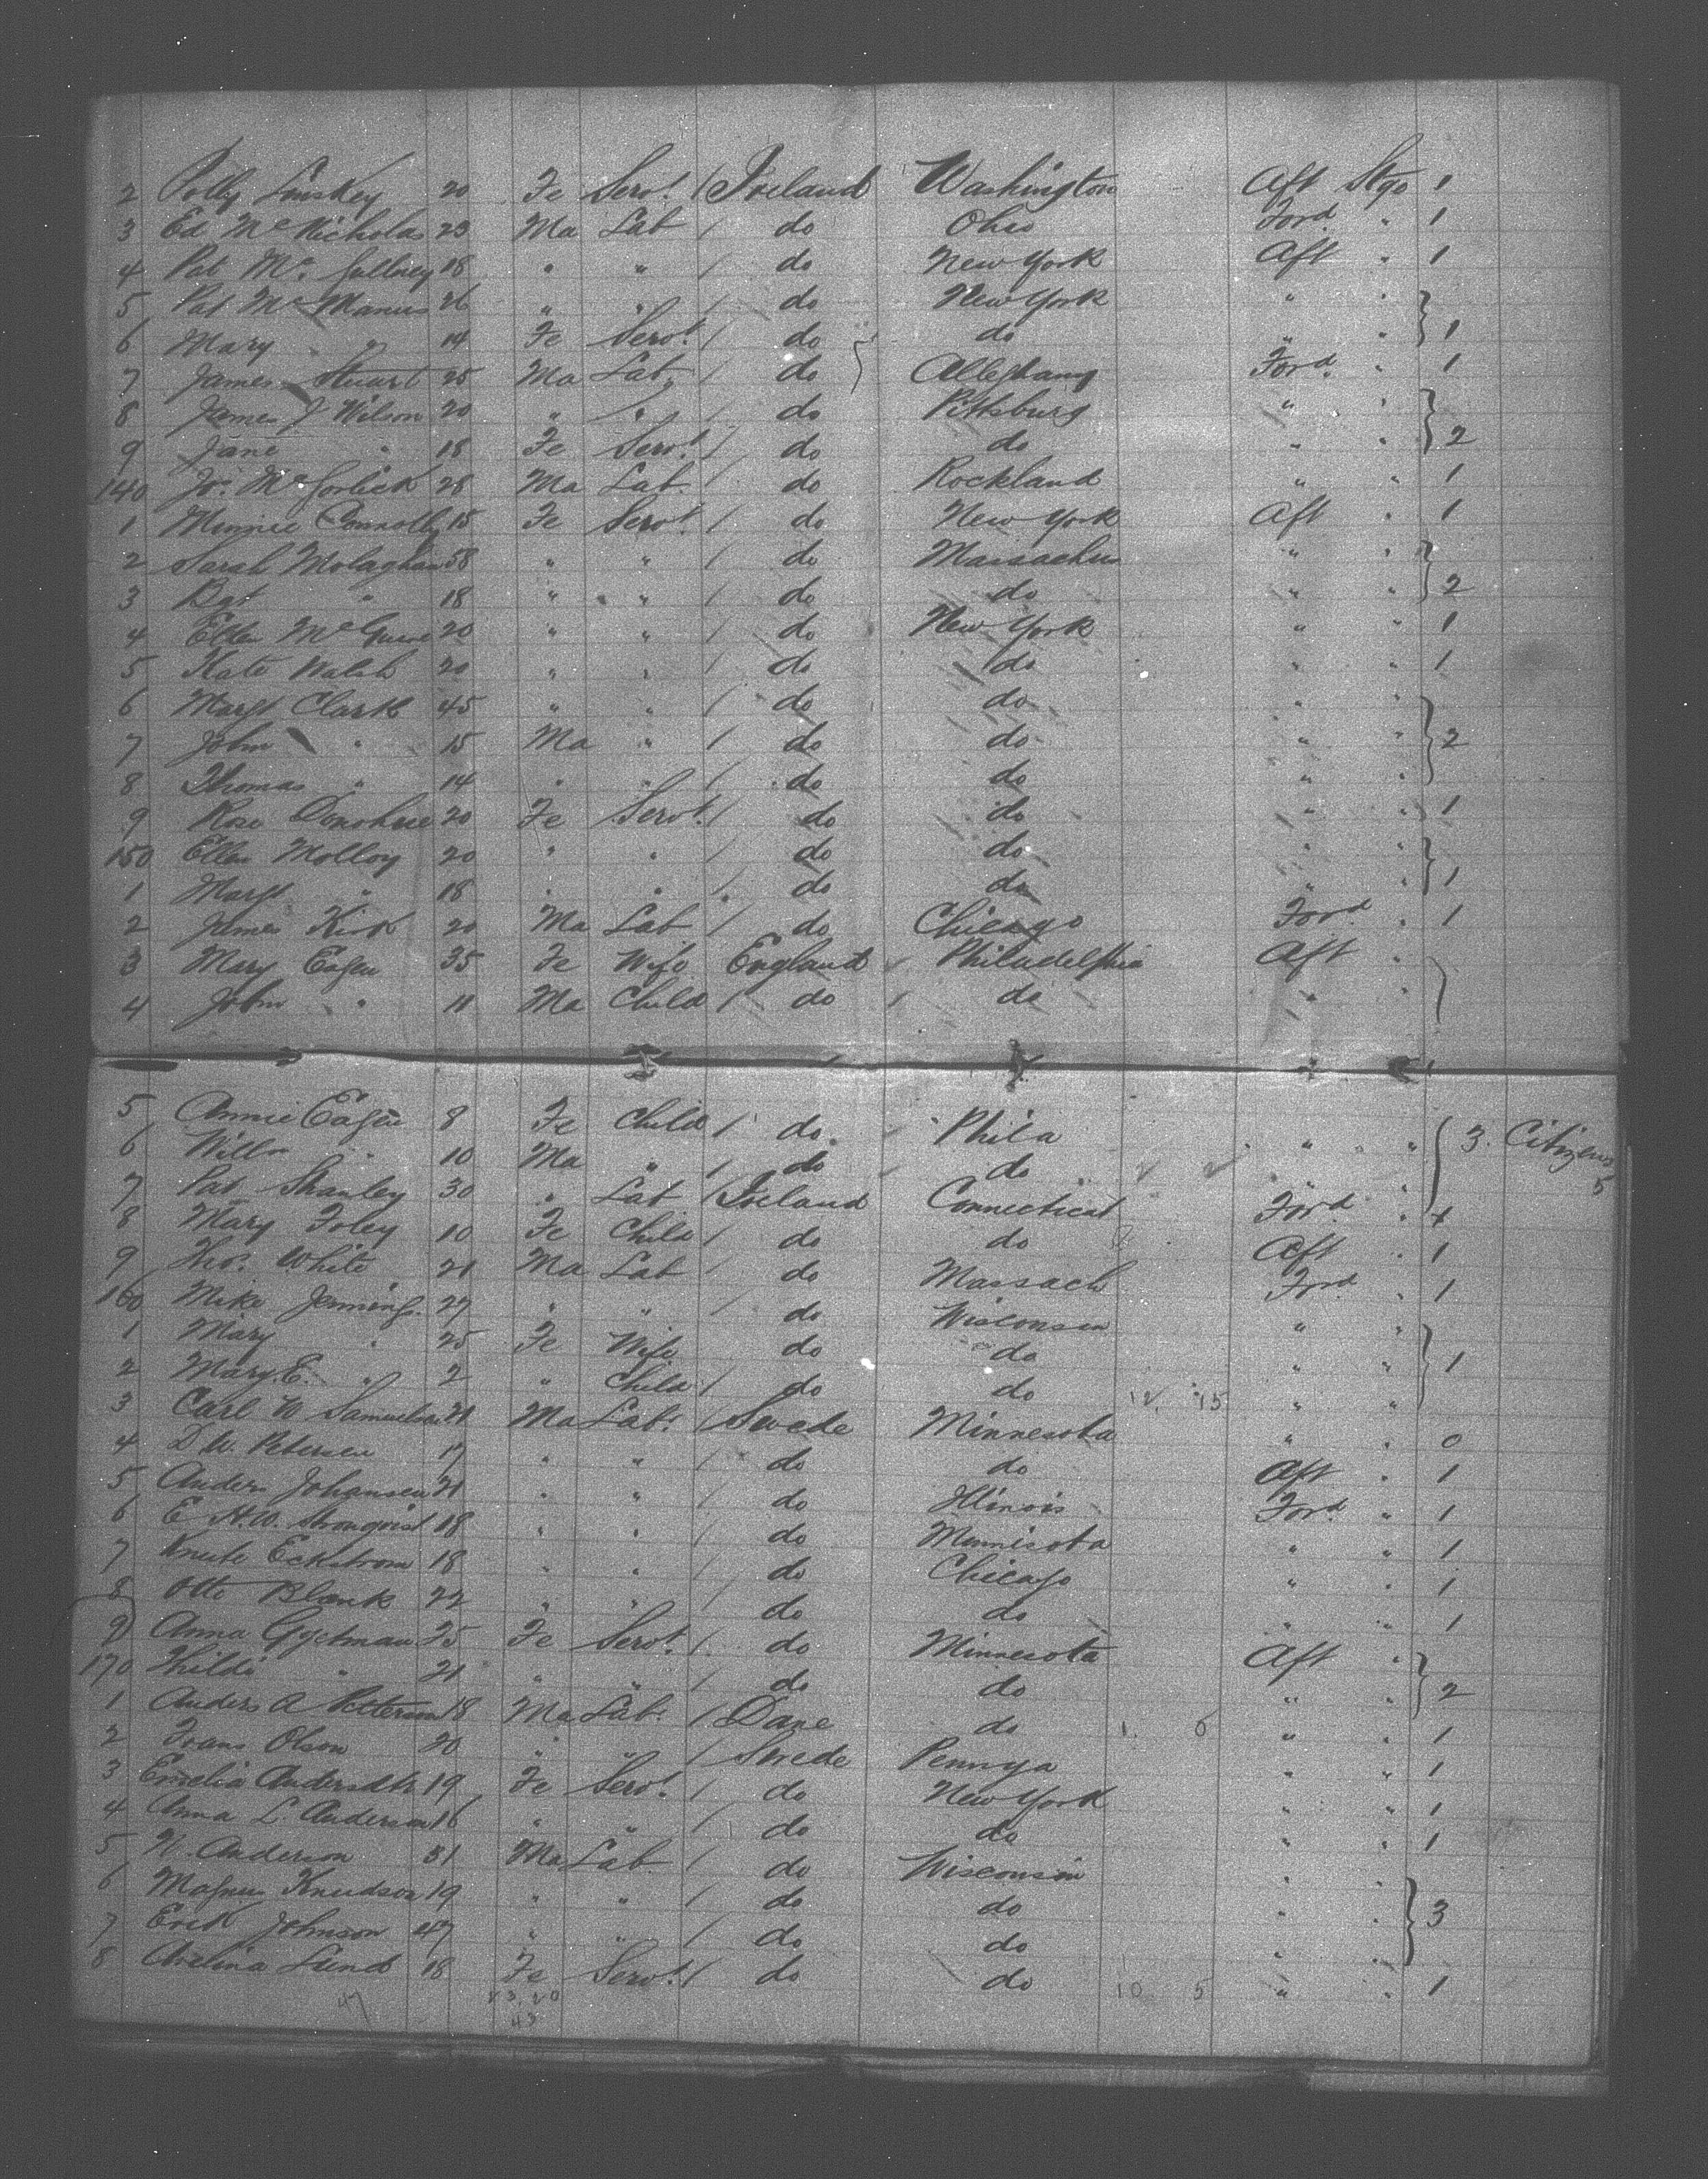 2 Polly Linskey 20 Fe Servt / Ireland Washington Aft Stge 1
3 Ed McNicholas 23 Ma Lab / do Ohio Ford " 1
4 Pat Mc 18 " " / do New York Aft " 1
5 Pat McManus 26 " " / do New York " "
6 Mary " 14 Fe Servt / do do " " } 1
7 James Stuart 25 Ma Lab / do Alleghany Ford " 1
8 James J Wilson 20 " " / do Pittsburg " "
9 Jane " 18 Fe Servt / do do " " } 2
140 Jos. McGorlick 28 Ma Lab / do Rockland " " 1
1 Minnie Connolly 15 Fe Servt / do New York Aft " 1
2 Sarah Molaghan 58 " " / do Massachus " "
3 Bgt " 18 " " / do do " " } 2
4 Ellen McGuire 20 " " / do New York " " 1
5 Kate Walsh 20 " " / do do " " 1
6 Margt Clark 45 " " / do do " "
7 John " 15 Ma " / do do " " } 2
8 Thomas " 14 " " / do do " "
9 Rose Donohue 20 Fe Servt / do do " " 1
150 Ellen Molloy 20 " " / do do " "
1 Margt " 18 " " / do do " " } 1
2 James Kirk 20 Ma Lab / do Chicago Ford " 1
3 Mary Eagen 35 Fe Wife England Philadelphia Aft "
4 John " 11 Ma Child / do do " " }
5 Annie Eagen 8 Fe Child / do Phila " " { 3 Citizens
6 Willm " 10 Ma " / do do " " 5
7 Pat Shanley 30 " Lab / Ireland Connecticut Ford " +
8 Mary Foley 10 Fe Child / do do Aft " 1
9 Thos. White 21 Ma Lab / do Massach Ford " 1
160 Mike Jennings 27 " " / do Wisconsin " "
1 Mary " 25 Fe Wife do do " " } 1
2 Mary E. " 2 " Child / do do 12 15 " "
3 Carl W Samuelson 21 Ma Lab / Swede Minnesota " " 0
4 D W. Petersen 17 " " / do do Aft " 1
5 Anders Johansen 21 " " / do Illinois Ford " 1
6 E. H. W. Stronqvist 18 " " / do Minnisota " " 1
7 Knute Eckstrom 18 " " / do Chicago " " 1
8 Otto Blank 22 " " / do do " " 1
9 Anna Gyetman 25 Fe Servt / do Minnesota Aft "
170 Hilde " 21 " " / do do " " } 2
1 Anders A Petterson 18 Ma Lab / Dane do 1 6 " " 1
2 Frans Olson 20 " " / Swede Pennya " " 1
3 Emelia Andersdtr 19 Fe Servt / do New York " " 1
4 Anna L. Anderson 16 " " / do do " " 1
5 N. Anderson 31 Ma Lab / do Wisconsin " "
6 Magnus Knudson 19 " " / do do " " } 3
7 Erik Johnson 47 " " / do do " "
8 Avelina Lund 18 Fe Servt / do do 10 5 " " 1
47 23.20
43